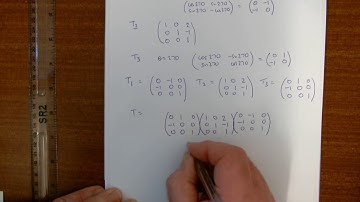 (cos270 sin270 / sin270 -cos270) = (0 -1 / -1 0)
T2 (1 0 2 / 0 1 -1 / 0 0 1)
T3 θ=270 (cos270 -sin270 / sin270 cos270) (0 1 / -1 0)
T1 = (0 -1 0 / -1 0 0 / 0 0 1) T2 = (1 0 2 / 0 1 -1 / 0 0 1) T3 = (0 1 0 / -1 0 0 / 0 0 1)
T= (0 1 0 / -1 0 0 / 0 0 1)(1 0 2 / 0 1 -1 / 0 0 1)(0 -1 0 / -1 0 0 / 0 0 1)
SR2